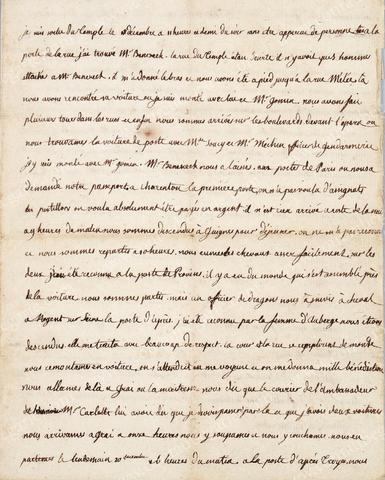 je suis sortie du Temple le décembre a 11 heures et demi du soir sans être apperçue de personne a la
porte de la rue j'ai trouvé Mr Benezech. la rue du Temple était il n'y avoit qu'un homme
attaché a Mr Benezech. il m'a donné le bras et nous avons été a pied jusqu'a la rue Meslée la
nous avons rencontré sa voiture ou je suis monté avec lui et Mr gomin. nous avons fait
plusieurs tours dans les rues et enfin nous sommes arrivés sur les boulevards devant l'opera ou
nous trouvames la voiture de poste avec Mde soucy et Mr Mechin officier de gendarmerie
j'y suis monté avec Mr gomin. Mr Benezech nous a laissés. aux portes de Paris on nous a
demandé notre passeport a charenton la premiere poste, on ne voula d'assignats
les postillons on voula absolument être payés en argent il n'est rien arrivé a reste de la nuit
a 9 heures du matin nous sommes descendus a Guignes pour déjeuner. on ne me pas reconnue
et nous sommes repartis a 10 heures. nous eumes des chevaux assez facilement sur les
deux j'ai été reconnue a la poste de Provins. il y a eu du monde qui s'est rassemblé près
de la voiture nous sommes partis mais un officier de dragons nous a suivis a cheval
a Nogent sur seine la poste d'après. j'ai été reconnue par la femme d'auberge nous étions
descendus. elle me traita avec beaucoup de respect. la cour et la rue se remplirent de monde
nous remontames en voiture, on s'attendrit en me voyant et on me donna mille bénédictions
nous allames de là a Grai ou la maitresse nous dit que le courier de l'ambassadeur
de Mr Carletti lui avoit dit que je devois passer par la et que j'avois deux voitures
nous arrivames a grai a onze heures nous y soupames et nous y couchames. nous en
partimes le lendemain 20 a 6 heures du matin. a la poste d'après Troyes nous